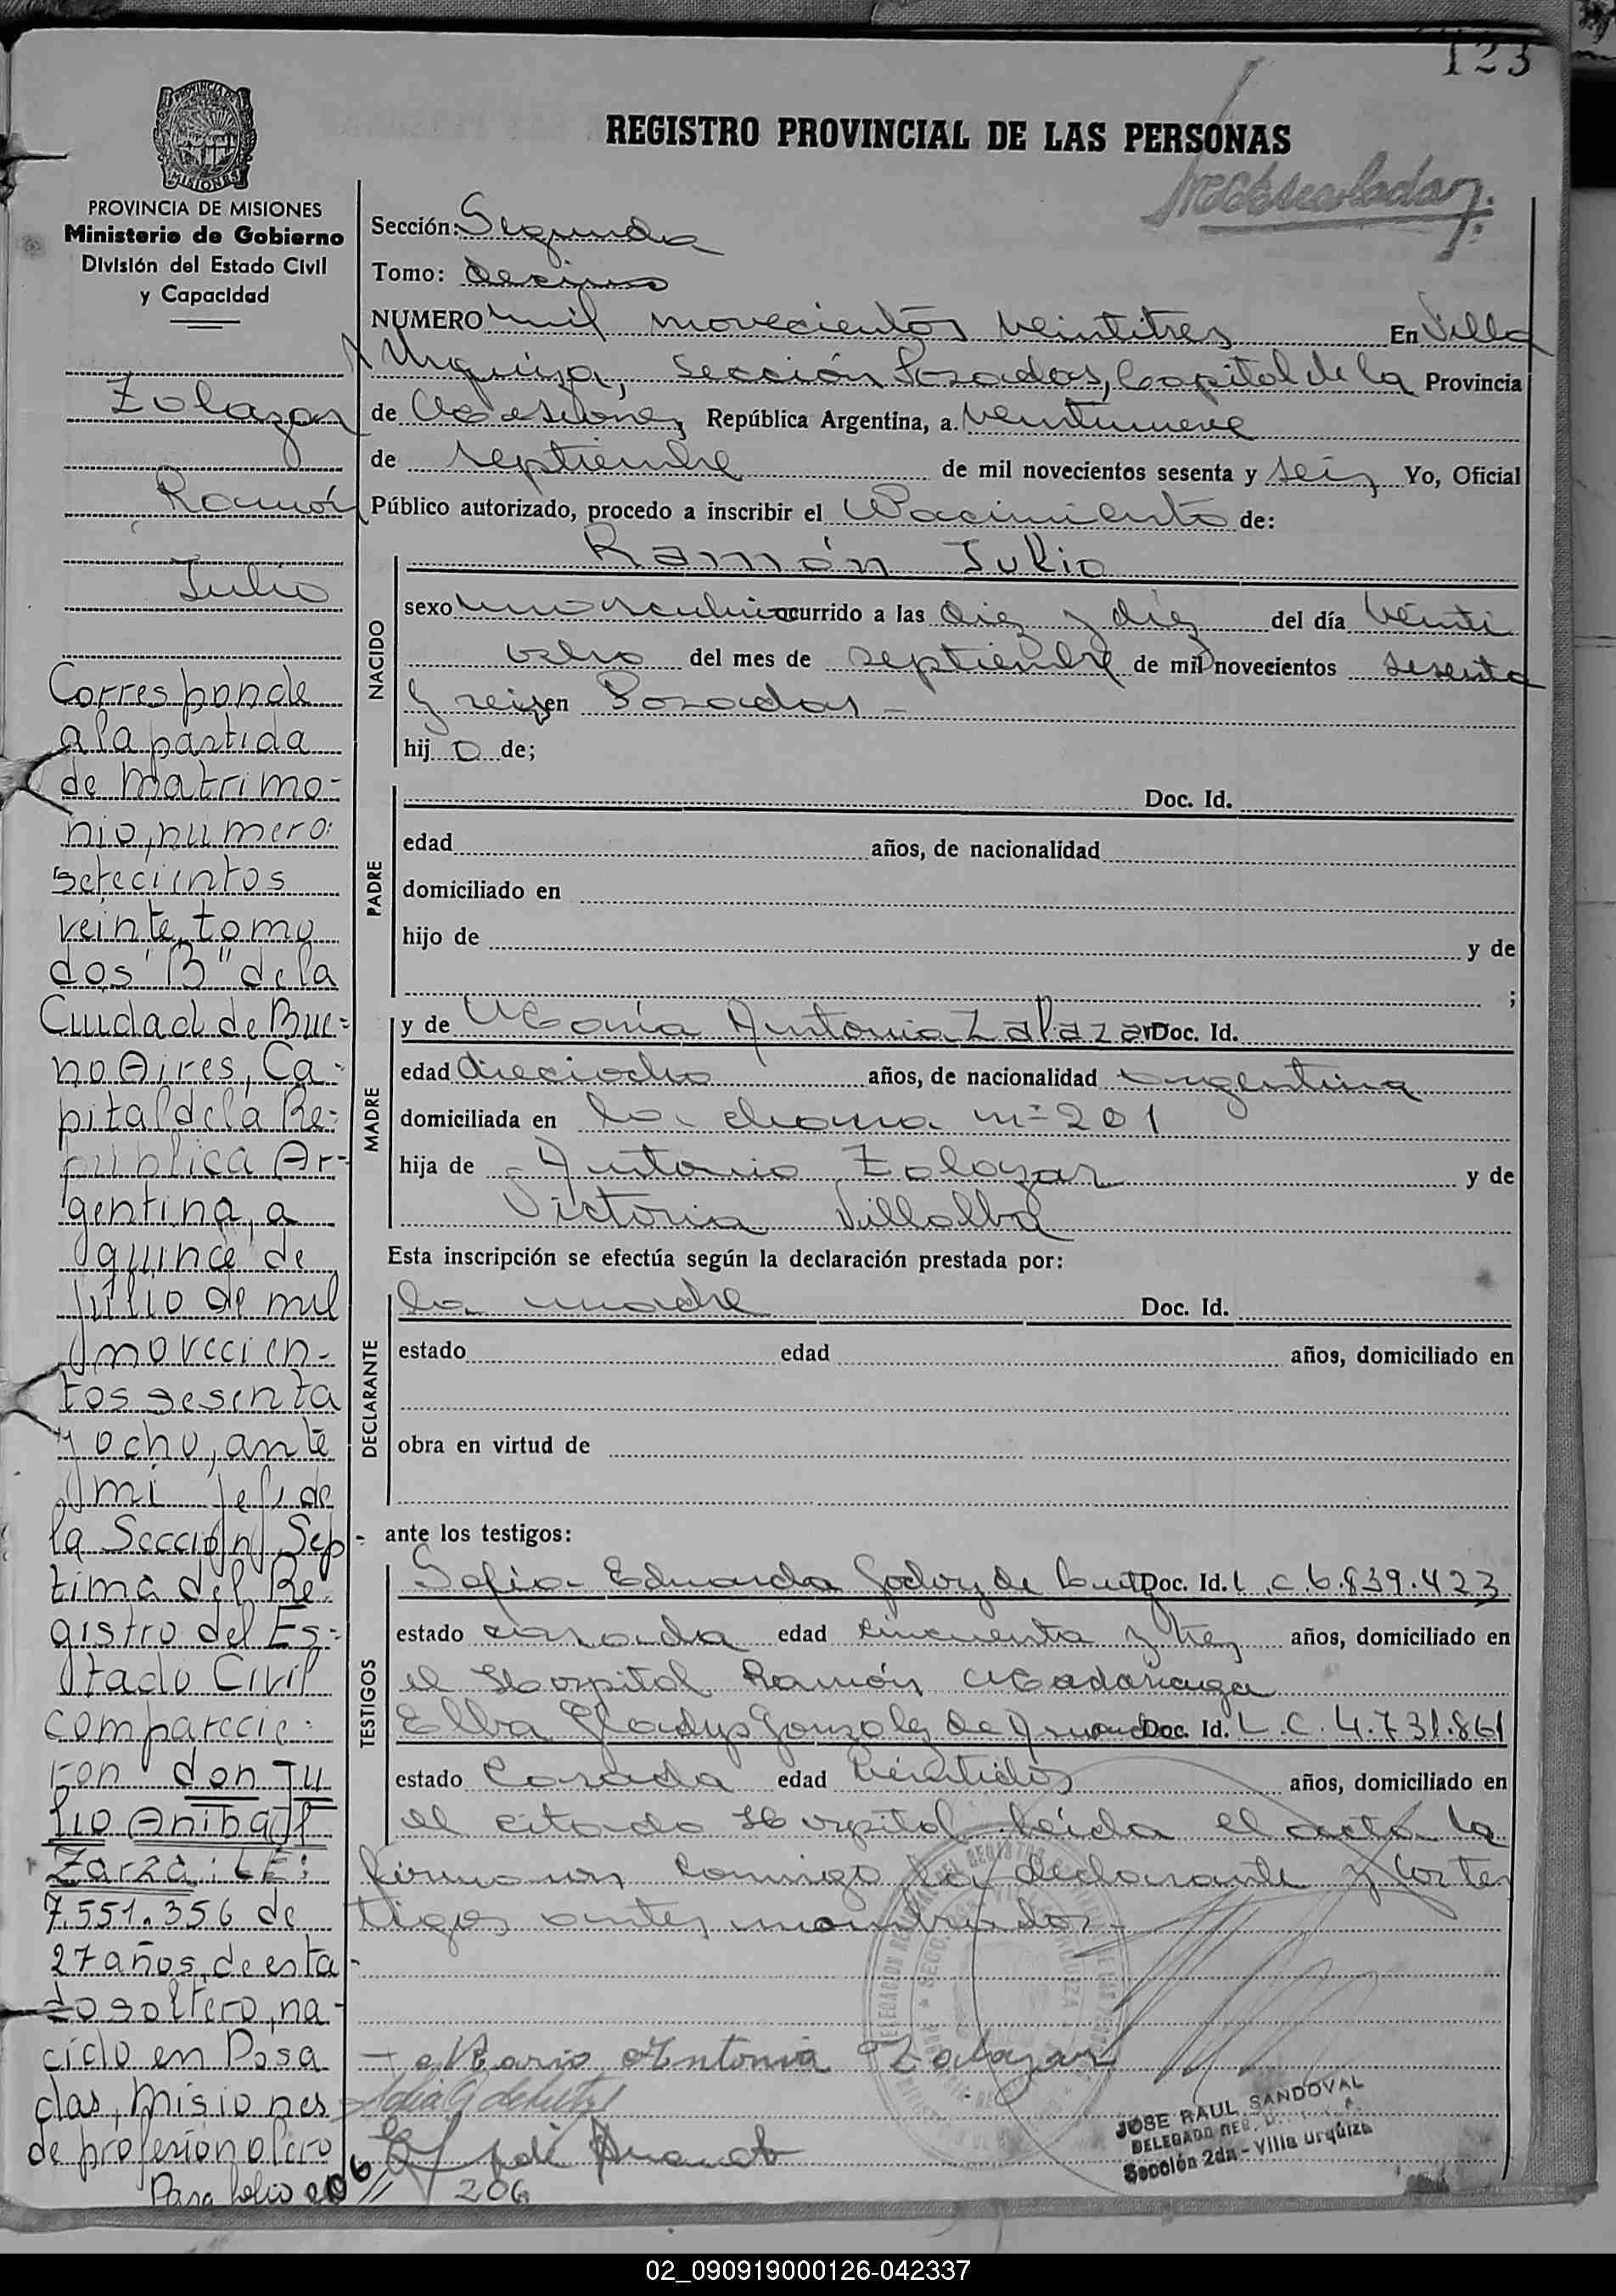 123
REGISTRO PROVINCIAL DE LAS PERSONAS
PROVINCIA DE MISIONES
Ministerio de Gobierno
División del Estado Civil
y Capacidad
Zalazar
Ramón
Julio
Corresponde
a la partida
de matrimo-
nio, numero:
setecientos
veinte, tomo
dos "B" de la
Ciudad de Bue-
no Aires, Ca-
pital de la Re-
publica Ar-
gentina, a
quince de
julio de mil
novecien-
tos sesenta
y ocho, ante
mi Jefe de
la Sección Sép-
tima del Re-
gistro del Es-
tado Civil
comparecie-
ron don Ju
lio Anibal
Zarza: LE:
7.551.356 de
27 años, de esta-
do soltero, na-
cido en Posa
das, Misiones
de profesión
Pasa folio 206
Sección: Segunda
Tomo: decimo
NUMERO mil novecientos veintitres En Villa
Urquiza, Sección Posadas, Capital de la Provincia
de Misiones, República Argentina, a veintinueve
de septiembre de mil novecientos sesenta y seis Yo, Oficial
Público autorizado, procedo a inscribir el Nacimiento de:
Ramón Julio
NACIDO
sexo masculino ocurrido a las diez y diez del día veinti
ocho del mes de septiembre de mil novecientos sesenta
y seis en Posadas -
hij o de;
PADRE
Doc. Id.
edad años, de nacionalidad
domiciliado en
hijo de y de
;
MADRE
y de María Antonia Zalazar Doc. Id.
edad dieciocho años, de nacionalidad argentina
domiciliada en la chacra nº 201
hija de Antonio Zalazar y de
Victoria Villalba
Esta inscripción se efectúa según la declaración prestada por:
DECLARANTE
la madre Doc. Id.
estado edad años, domiciliado en
obra en virtud de
ante los testigos:
TESTIGOS
Sofia Eduarda Godoy de Doc. Id. L.C 6.839.423
estado casada edad cincuenta y tres años, domiciliado en
el Hospital Ramón Madariaga
Elba Gladys Gonzalez de Doc. Id. L.C. 4.731.861
estado Casada edad veintidos años, domiciliado en
el citado Hospital leída el acta la
firmaron conmigo la declarante y los tes
tigos antes nombrados -
Maria Antonia Zalazar
206
JOSE RAUL SANDOVAL
DELEGADO REG.
Sección 2da - Villa Urquiza
02_090919000126-042337